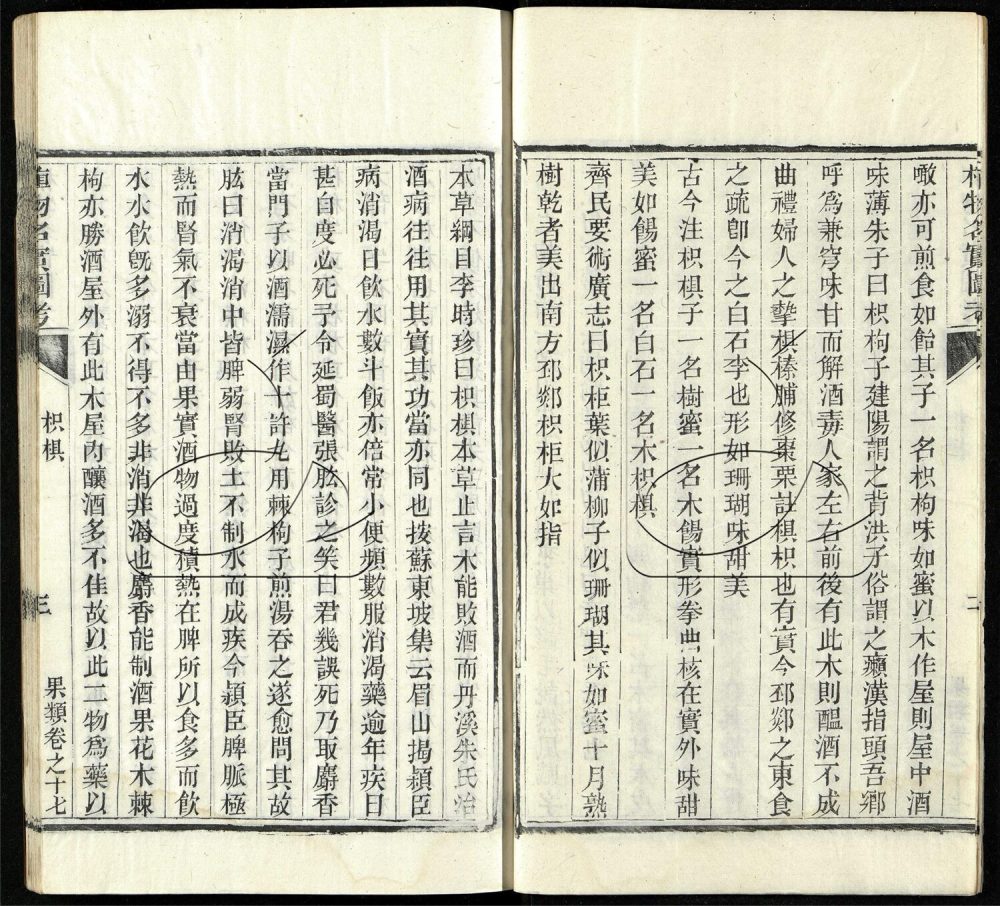 植物名實圖考
二
噉亦可煎食如飴其子一名枳枸味如蜜以木作屋則屋中酒
味薄朱子曰枳枸子建陽謂之背洪子俗謂之癩漢指頭吾鄉
呼爲兼穹味甘而解酒毒人家左右前後有此木則醞酒不成
曲禮婦人之摯椇榛脯修棗栗註椇枳也有實今邳郯之東食
之疏卽今之白石李也形如珊瑚味甜美
古今注枳椇子一名樹蜜一名木餳實形拳曲核在實外味甜
美如餳蜜一名白石一名木枳椇
齊民要術廣志曰枳柜葉似蒲柳子似珊瑚其味如蜜十月熟
樹乾者美出南方邳郯枳柜大如指
本草綱目李時珍曰枳椇本草止言木能敗酒而丹溪朱氏治
酒病往往用其實其功當亦同也按蘇東坡集云眉山揭穎臣
病消渴日飲水數斗飯亦倍常小便頻數服消渴藥逾年疾日
甚自度必死予令延蜀醫張肱診之笑曰君幾誤死乃取麝香
當門子以酒濡濕作十許丸用棘枸子煎湯吞之遂愈問其故
肱曰消渴消中皆脾弱腎敗土不制水而成疾今潁臣脾脈極
熱而腎氣不衰當由果實酒物過度積熱在脾所以食多而飲
水水飲旣多溺不得不多非消非渴也麝香能制酒果花木棘
枸亦勝酒屋外有此木屋內釀酒多不佳故以此二物爲藥以
植物名實圖考
枳椇
三
果類卷之十七